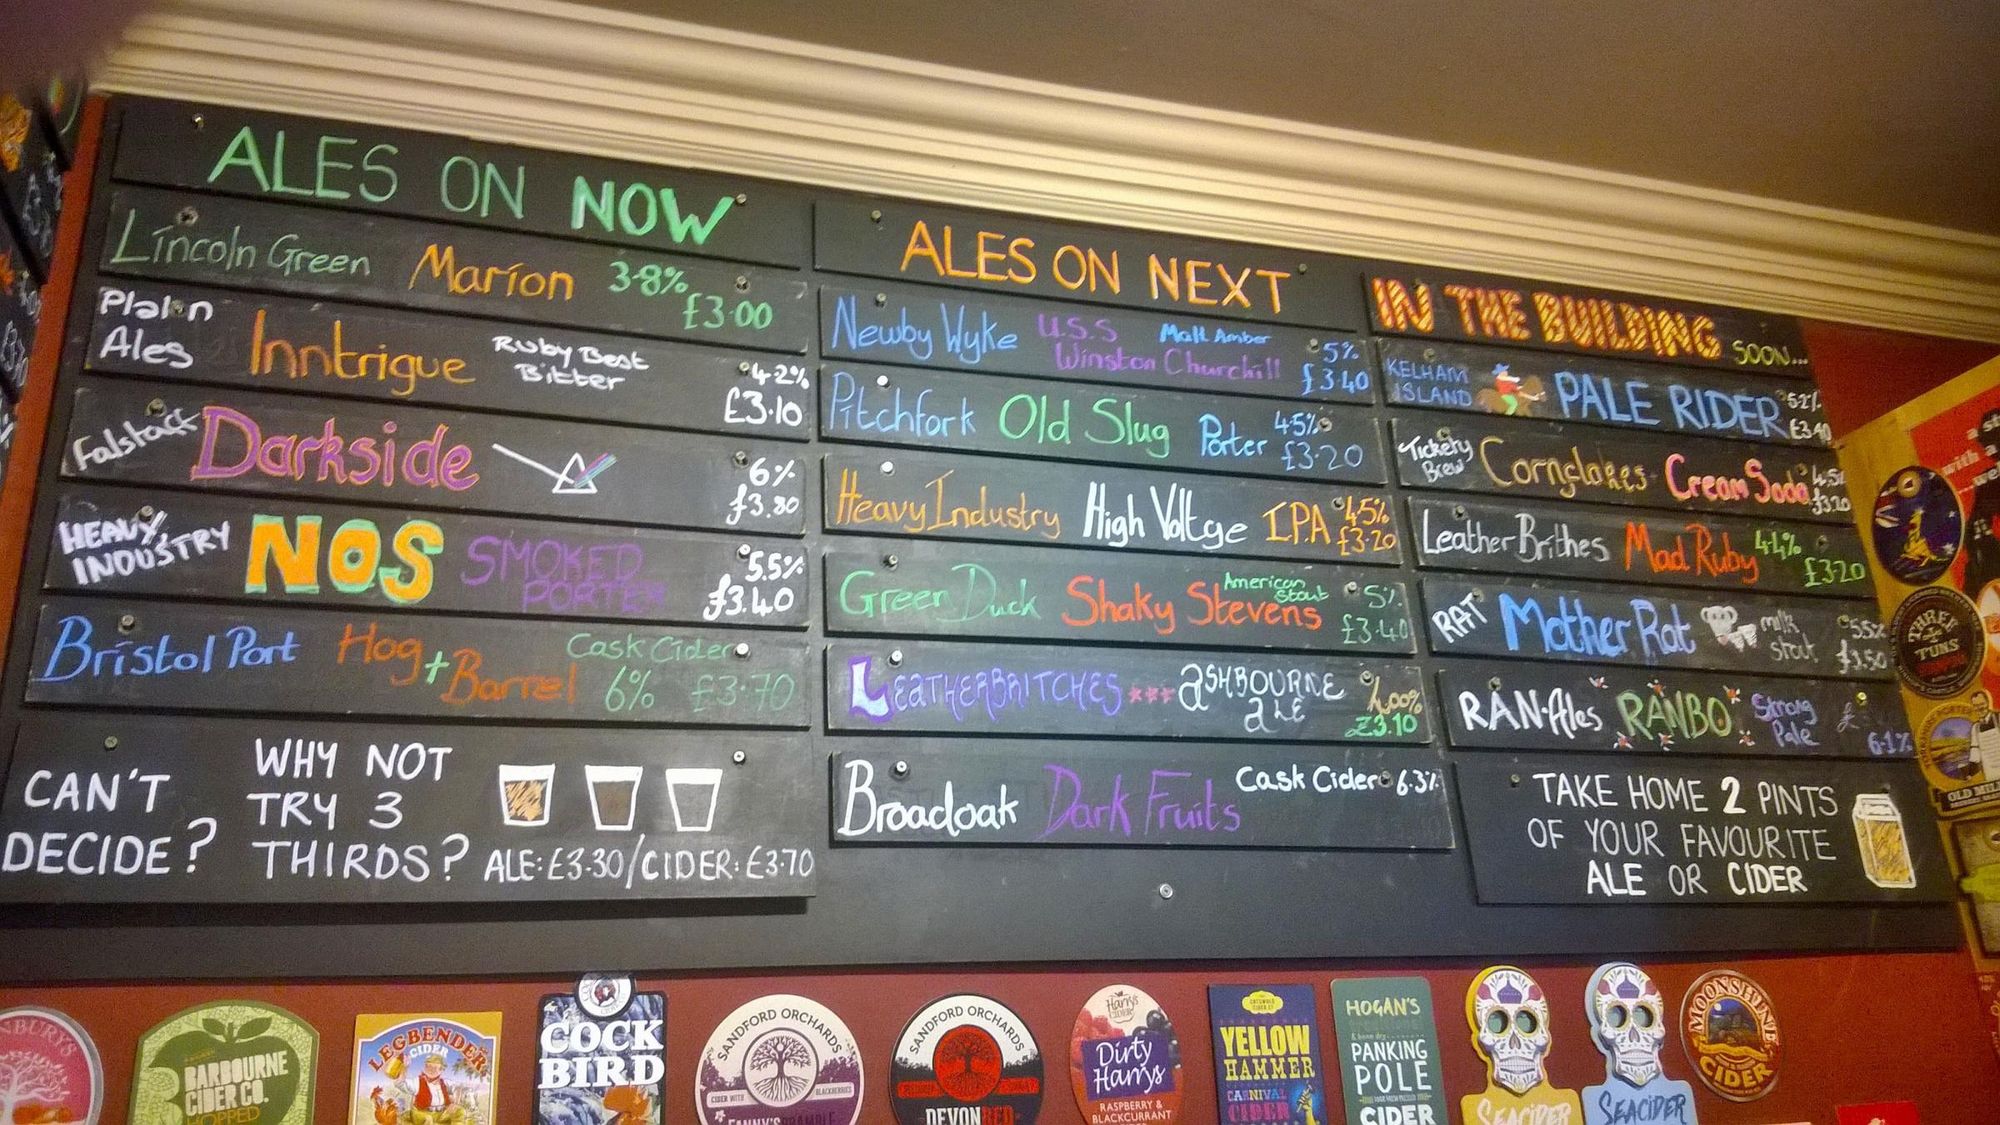 ALES ON NOW
Lincoln Green Marion 3.8% £3.00
Plain Ales Inntrigue Ruby Best Bitter 4.2% £3.10
Falstaff Darkside 6% £3.80
HEAVY INDUSTRY NOS SMOKED PORTER 5.5% £3.40
Bristol Port Hog + Barrel Cask Cider 6% £3.70
CAN'T DECIDE?
WHY NOT
TRY 3
THIRDS?
ALE: £3.30/CIDER: £3.70
ALES ON NEXT
Newby Wyke U.S.S Winston Churchill Malt Amber 5% £3.40
Pitchfork Old Slug Porter 4.5% £3.20
Heavy Industry High Voltge I.P.A 4.5% £3.20
Green Duck Shaky Stevens American Stout 5% £3.40
LEATHERBRITCHES *** ASHBOURNE ALE £3.10
Broadoak Dark Fruits Cask Cider 6.3%
IN THE BUILDING SOON...
KELHAM ISLAND PALE RIDER 5.2% £3.40
Tickety Brew Cornflakes Cream Soda 4.5% £3.20
Leather Brithes Mad Ruby 4.4% £3.20
RAT Mother Rat milk stout 5.5% £3.50
RAN-Ales RANBO Strong Pale £ 6.1%
TAKE HOME 2 PINTS
OF YOUR FAVOURITE
ALE OR CIDER
THREE TUNS
OLD MILL
BARBOURNE
CIDER CO.
HOPPED
LEGBENDER
CIDER
COCK
BIRD
SANDFORD ORCHARDS
CIDER WITH BLACKBERRIES
FANNY'S BRAMBLE
SANDFORD ORCHARDS
DEVON RED
Harry's
CIDER
Dirty
Harrys
RASPBERRY &
BLACKCURRANT
YELLOW
HAMMER
CARNIVAL
CIDER
HOGAN'S
PANKING
POLE
CIDER
SEACIDER
SEACIDER
MOONSHINE
CIDER